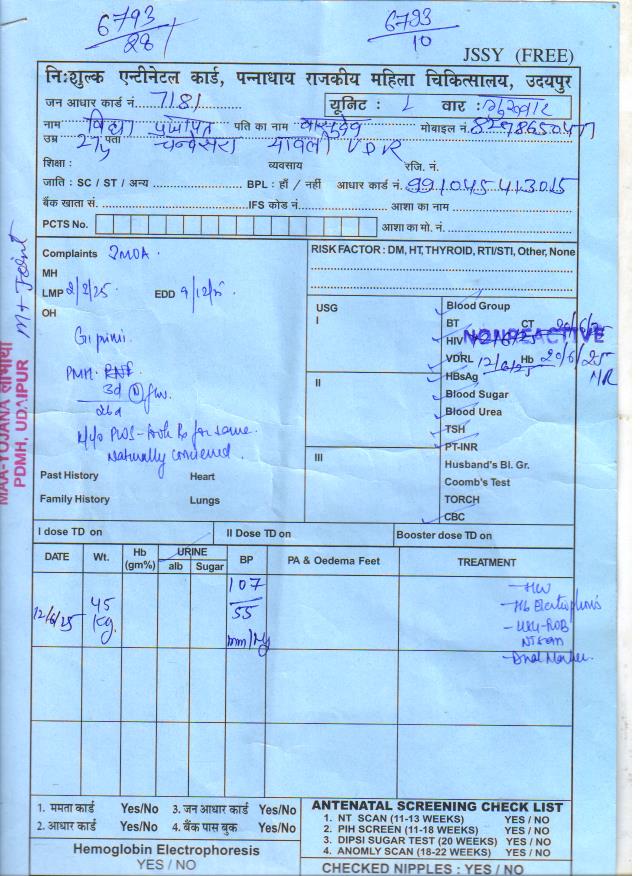 6793
28
6793
10
JSSY (FREE)
निःशुल्क एन्टीनेटल कार्ड, पन्नाधाय राजकीय महिला चिकित्सालय, उदयपुर
जन आधार कार्ड नं. 7181
यूनिट : L वार :
नाम विद्या प्रजापत पति का नाम वासुदेव मोबाइल नं.
उम्र 27y पता UDR
शिक्षा : व्यवसाय रजि. नं.
जाति : SC / ST / अन्य BPL : हाँ / नहीं आधार कार्ड नं. 991045413015
बैंक खाता सं. IFS कोड नं. आशा का नाम
PCTS No. आशा का मो. नं.
M+ Joint
MAA-YOJANA लाभार्थी
PDMH, UDAIPUR
Complaints 2MOA.
MH
LMP 2/2/25 EDD 9/12/
OH
G1 primi
PMH. RNF
3d (N) flow
26d
K/c/o PCOS - took Rx for same.
Naturally conceived.
Past History Heart
Family History Lungs
RISK FACTOR : DM, HT, THYROID, RTI/STI, Other, None
USG
I
II
III
Blood Group
BT CT 20/6/25
HIV 12/6/25 NONREACTIVE
VDRL 12/6/25 Hb 20/6/25
HBsAg NR
Blood Sugar
Blood Urea
TSH
PT-INR
Husband's Bl. Gr.
Coomb's Test
TORCH
CBC
I dose TD on II Dose TD on Booster dose TD on
DATE Wt. Hb (gm%) URINE alb Sugar BP PA & Oedema Feet TREATMENT
12/6/25 45 Kg. 107/55 mm/Hg
- Hb Electrophoresis
NT scan
- Dual Marker.
1. ममता कार्ड Yes/No 3. जन आधार कार्ड Yes/No
2. आधार कार्ड Yes/No 4. बैंक पास बुक Yes/No
Hemoglobin Electrophoresis
YES / NO
ANTENATAL SCREENING CHECK LIST
1. NT SCAN (11-13 WEEKS) YES / NO
2. PIH SCREEN (11-18 WEEKS) YES / NO
3. DIPSI SUGAR TEST (20 WEEKS) YES / NO
4. ANOMLY SCAN (18-22 WEEKS) YES / NO
CHECKED NIPPLES : YES / NO